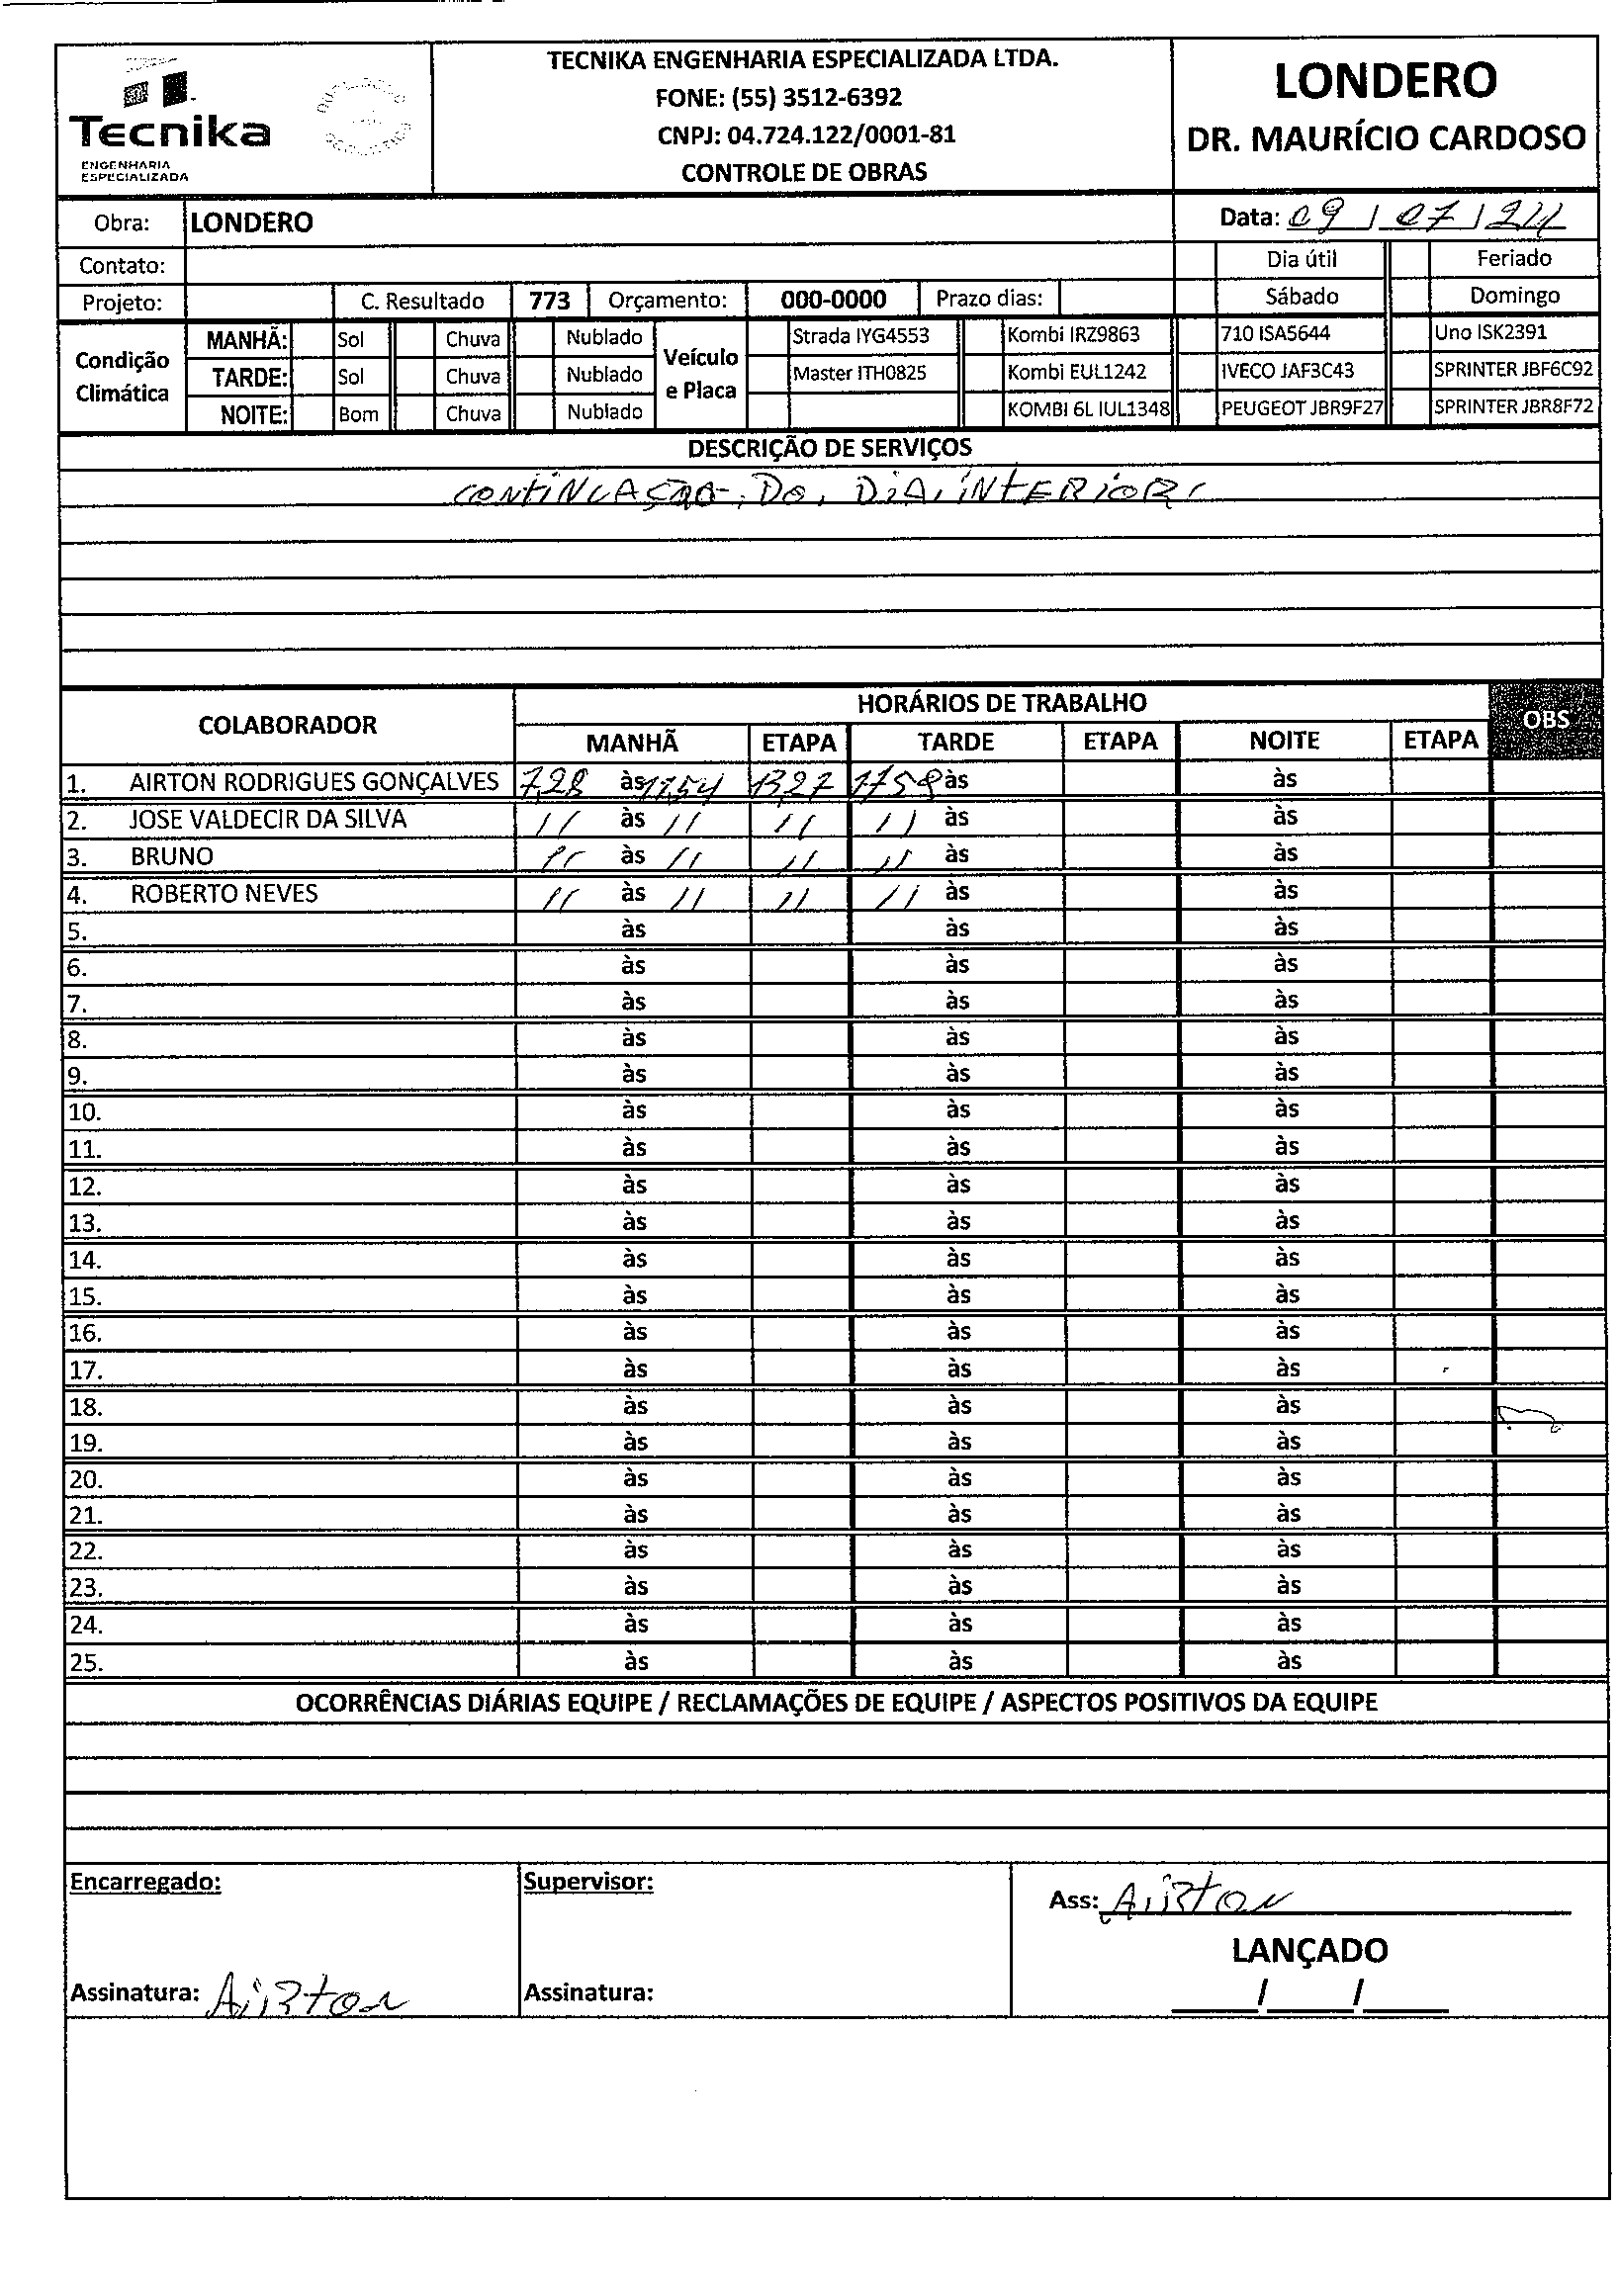 Tecnika
ENGENHARIA
ESPECIALIZADA
TECNIKA ENGENHARIA ESPECIALIZADA LTDA.
FONE: (55) 3512-6392
CNPJ: 04.724.122/0001-81
CONTROLE DE OBRAS
LONDERO
DR. MAURÍCIO CARDOSO
Obra: LONDERO Data: 09/07/24
Contato: Dia útil Feriado
Projeto: C. Resultado 773 Orçamento: 000-0000 Prazo dias: Sábado Domingo
Condição Climática
MANHÃ: Sol Chuva Nublado
TARDE: Sol Chuva Nublado
NOITE: Bom Chuva Nublado
Veículo e Placa
Strada IYG4553 Kombi IRZ9863 710 ISA5644 Uno ISK2391
Master ITH0825 Kombi EUL1242 IVECO JAF3C43 SPRINTER JBF6C92
KOMBI 6L IUL1348 PEUGEOT JBR9F27 SPRINTER JBR8F72
DESCRIÇÃO DE SERVIÇOS
CONTINCAÇÃO, DO, DIA, INTERIOR,
COLABORADOR HORÁRIOS DE TRABALHO OBS
MANHÃ ETAPA TARDE ETAPA NOITE ETAPA
1. AIRTON RODRIGUES GONÇALVES 7,28 às 11,54 13,27 1758 às às
2. JOSE VALDECIR DA SILVA 11 às 11 11 11 às às
3. BRUNO 11 às 11 11 11 às às
4. ROBERTO NEVES 11 às 11 11 11 às às
5. às às às
6. às às às
7. às às às
8. às às às
9. às às às
10. às às às
11. às às às
12. às às às
13. às às às
14. às às às
15. às às às
16. às às às
17. às às às
18. às às às
19. às às às
20. às às às
21. às às às
22. às às às
23. às às às
24. às às às
25. às às às
OCORRÊNCIAS DIÁRIAS EQUIPE / RECLAMAÇÕES DE EQUIPE / ASPECTOS POSITIVOS DA EQUIPE
Encarregado:
Assinatura: Airton
Supervisor:
Assinatura:
Ass: Airton
LANÇADO
____/____/____